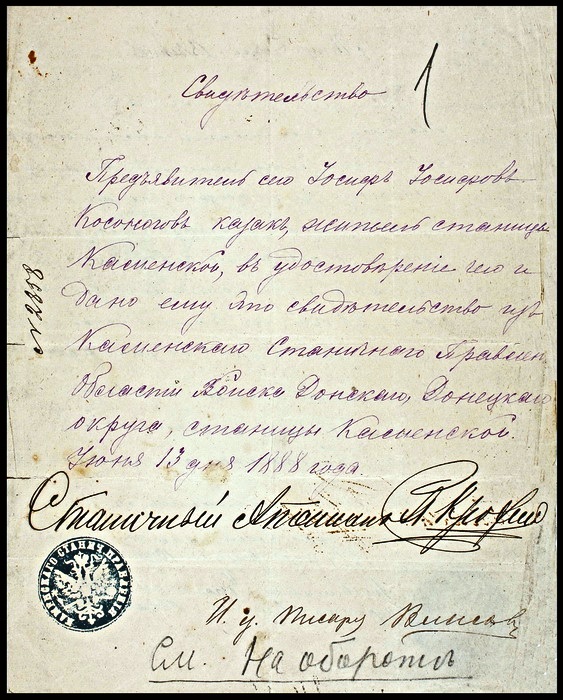 1
Свидѣтельство
Предъявитель сего Іосифъ Іосифовъ
Косоноговъ казакъ, житель станицы
Каменской, въ удостовѣреніе чего и
дано ему это свидѣтельство изъ
Каменскаго Станичнаго Правлен.
Области Войска Донскаго, Донецкаго
округа, станицы Каменской.
Іюня 13 дня 1888 года.
Станичный Атаманъ
И. у. писаря
См. На оборотѣ